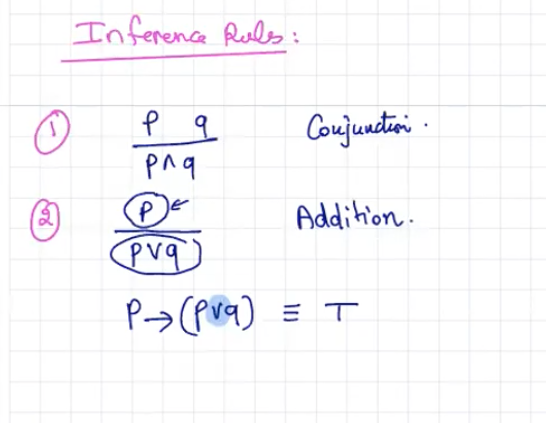 Inference Rules:
① P q Conjunction.
P ∧ q
② P ← Addition.
P ∨ q
P → (P ∨ q) ≡ T